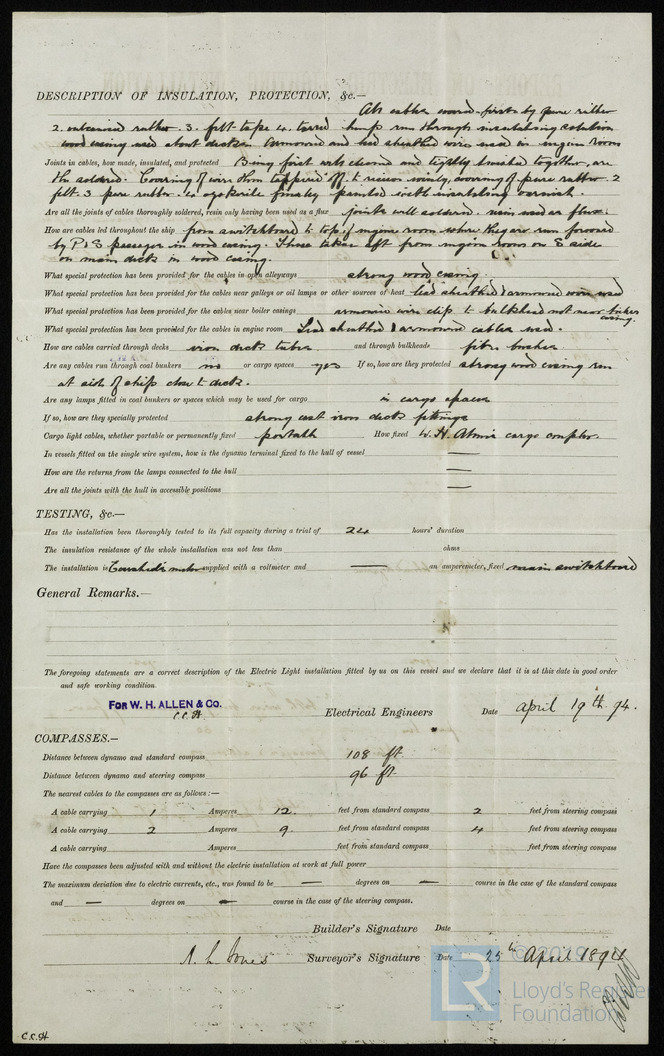 DESCRIPTION OF INSULATION, PROTECTION, &c.—
All cables covered first by pure rubber
2. vulcanised rubber. 3. felt tape 4. tarred hemp run through insulating solution
wood casing used about decks. Armoured and lead sheathed wires used in engine room
Joints in cables, how made, insulated, and protected Being first well cleaned and tightly twisted together, are
then soldered. Covering of wire then tappered off to receive covering of pure rubber. 2
felt. 3 pure rubber. 4 finally painted with insulating varnish.
Are all the joints of cables thoroughly soldered, resin only having been used as a flux joints well soldered. resin used as flux.
How are cables led throughout the ship from switchboard to top of engine room where they are run forward
by P & S passages in wood casing. Those taken aft from engine room on S side
on main deck in wood casing.
What special protection has been provided for the cables in open alleyways strong wood casing.
What special protection has been provided for the cables near galleys or oil lamps or other sources of heat lead sheathed & armoured wires used
What special protection has been provided for the cables near boiler casings armoured wire clip to bulkhead not near boiler casing.
What special protection has been provided for the cables in engine room Lead sheathed & armoured cables used.
How are cables carried through decks iron deck tubes and through bulkheads fibre bushes.
Are any cables run through coal bunkers no or cargo spaces yes If so, how are they protected strong wood casing run
at side of ship close to deck.
Are any lamps fitted in coal bunkers or spaces which may be used for cargo in cargo spaces
If so, how are they specially protected strong cast iron deck fittings
Cargo light cables, whether portable or permanently fixed portable How fixed W. H. Allen's cargo coupler.
In vessels fitted on the single wire system, how is the dynamo terminal fixed to the hull of vessel —
How are the returns from the lamps connected to the hull —
Are all the joints with the hull in accessible positions —
TESTING, &c.—
Has the installation been thoroughly tested to its full capacity during a trial of 24 hours' duration
The insulation resistance of the whole installation was not less than ohms
The installation is supplied with a voltmeter and — an amperemeter, fixed main switchboard
General Remarks.—
The foregoing statements are a correct description of the Electric Light installation fitted by us on this vessel and we declare that it is at this date in good order
and safe working condition.
FOR W. H. ALLEN & CO.
C.C.H. Electrical Engineers Date April 19th 94.
COMPASSES.—
Distance between dynamo and standard compass 108 ft.
Distance between dynamo and steering compass 96 ft.
The nearest cables to the compasses are as follows:—
A cable carrying 1 Amperes 12. feet from standard compass 2 feet from steering compass
A cable carrying 2 Amperes 9. feet from standard compass 4 feet from steering compass
A cable carrying Amperes feet from standard compass feet from steering compass
Have the compasses been adjusted with and without the electric installation at work at full power
The maximum deviation due to electric currents, etc., was found to be — degrees on — course in the case of the standard compass
and — degrees on — course in the case of the steering compass.
Builder's Signature Date
A. L. Jones Surveyor's Signature Date 25th April 1894
© 2019
LR
Lloyd's Register
Foundation
C.C.H